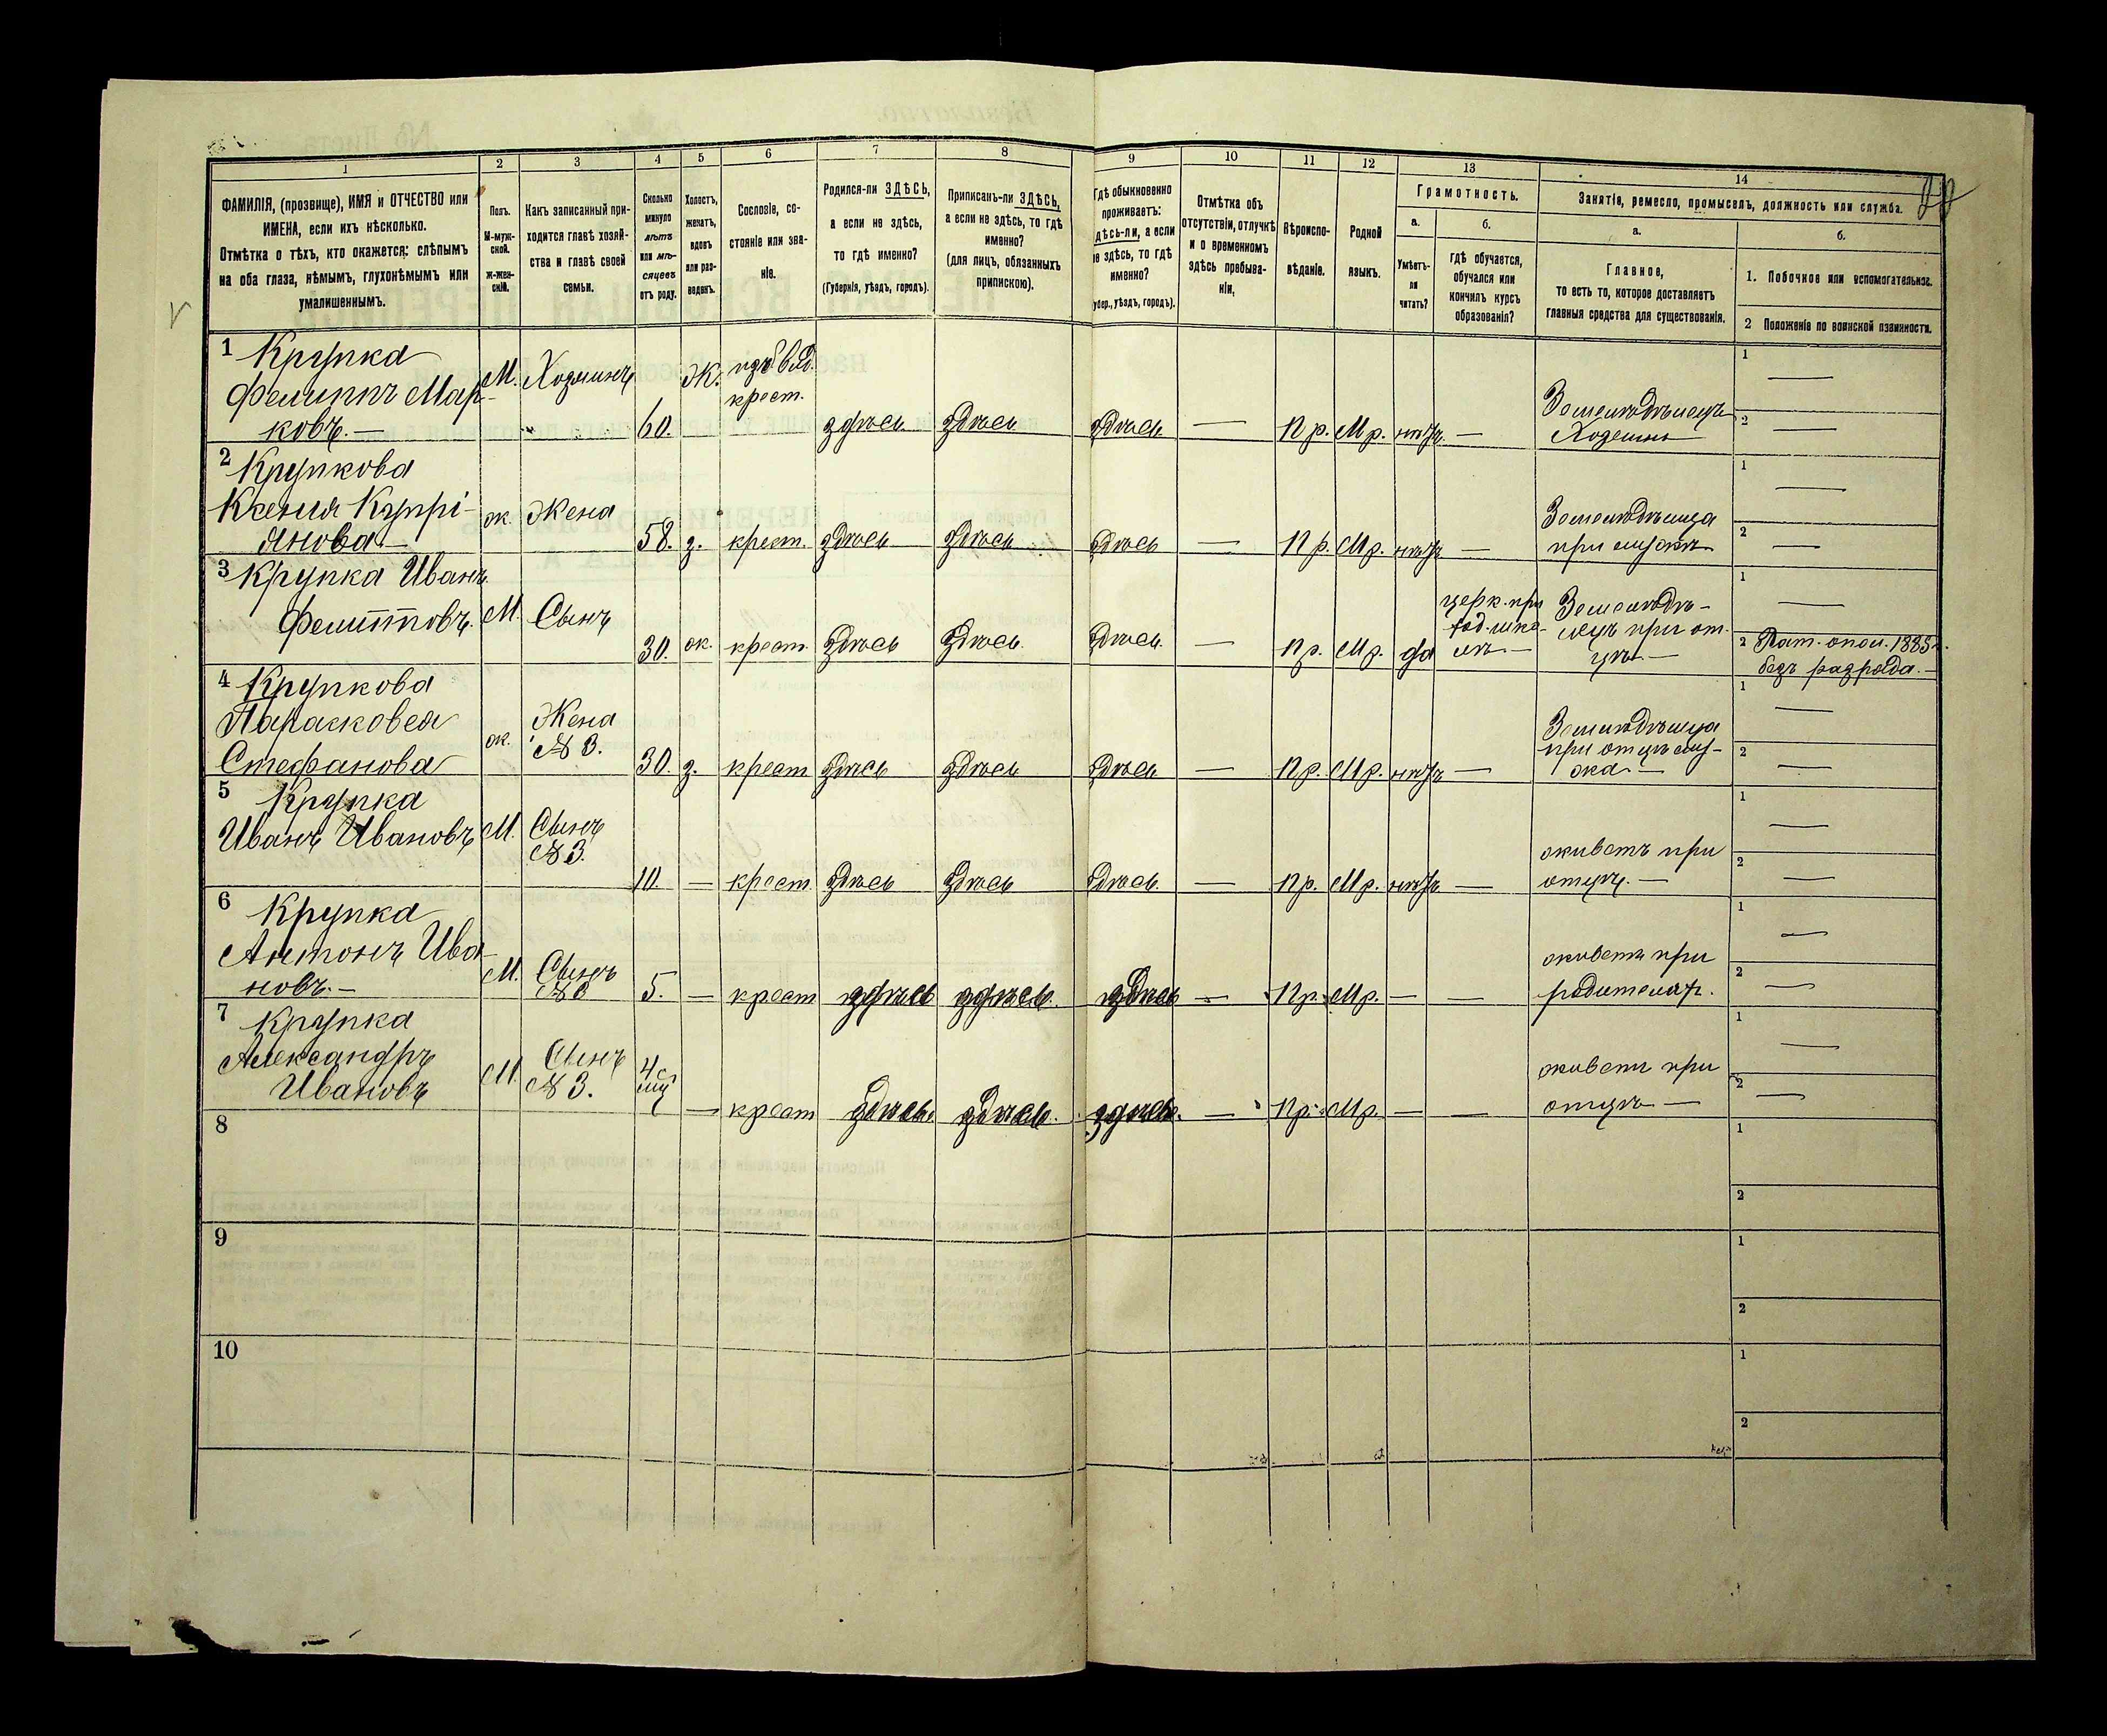 1 2 3 4 5 6 7 8 9 10 11 12 13 14
ФАМИЛІЯ, (прозвище), ИМЯ и ОТЧЕСТВО или
ИМЕНА, если ихъ нѣсколько.
Отмѣтка о тѣхъ, кто окажется: слѣпымъ
на оба глаза, нѣмымъ, глухонѣмымъ или
умалишеннымъ.
Полъ.
М-муж-
ской.
ж-жен-
скій.
Какъ записанный при-
ходится главѣ хозяй-
ства и главѣ своей
семьи.
Сколько
минуло
лѣтъ
или мѣ-
сяцевъ
отъ роду.
Холостъ,
женатъ,
вдовъ
или раз-
веденъ.
Сословіе, со-
стояніе или зва-
ніе.
Родился-ли ЗДѢСЬ,
а если не здѣсь,
то гдѣ именно?
(Губернія, уѣздъ, городъ).
Приписанъ-ли ЗДѢСЬ,
а если не здѣсь, то гдѣ
именно?
(для лицъ, обязанныхъ
припискою).
Гдѣ обыкновенно
проживаетъ:
здѣсь-ли, а если
не здѣсь, то гдѣ
именно?
губер., уѣздъ, городъ).
Отмѣтка объ
отсутствіи, отлучкѣ
и о временномъ
здѣсь пребыва-
ніи,
Вѣроиспо-
вѣданіе.
Родной
языкъ.
Грамотность.
а.
Умѣетъ-
ли
читать?
б.
гдѣ обучается,
обучался или
кончилъ курсъ
образованія?
Занятіе, ремесло, промыселъ, должность или служба.
а.
Главное,
то есть то, которое доставляетъ
главныя средства для существованія.
б.
1. Побочное или вспомогательное.
2 Положеніе по воинской повинности.
1 Крупка
Филиппъ Мар-
ковъ.—
М. Хозяинъ 60. Ж.
крест.
здѣсь здѣсь здѣсь — Пр. Мр. нѣтъ —
Земледѣлецъ
Хозяинъ
1 —
2 —
2 Крупкова
Ксенія Купрі-
янова—
ж. Жена 58. з. крест. здѣсь здѣсь здѣсь — Пр. Мр. нѣтъ —
Земледѣлица
при мужѣ
1 —
2 —
3 Крупка Иванъ
Филипповъ.
М. Сынъ 30. ж. крест здѣсь здѣсь здѣсь. Пр. Мр. да
церк. при
ход. шко-
лѣ—
Земледѣ-
лецъ при от-
цѣ.—
1 —
2 Рат. опол. 1885 г.
безъ разряда.—
4 Крупкова
Парасковея
Стефанова
ж. Жена
№ 3.
30. з. крест здѣсь здѣсь здѣсь — Пр. Мр. нѣтъ —
Земледѣлица
при отцѣ му-
жа—
1 —
2 —
5 Крупка
Иванъ Ивановъ
М. Сынъ
№ 3.
10 — крест здѣсь здѣсь здѣсь. — Пр. Мр. нѣтъ —
живетъ при
отцѣ.—
1 —
2 —
6 Крупка
Антонъ Ива-
новъ.—
М. Сынъ
№ 3
5. — крест здѣсь здѣсь. здѣсь — Пр. Мр. — —
живетъ при
родителях.
1 —
2 —
7 Крупка
Александръ
Ивановъ
М. Сынъ
№ 3.
— крест здѣсь. здѣсь. здѣсь. — Пр. Мр. — —
живетъ при
отцѣ—
1 —
2 —
8
1
2
9
1
2
10
1
2